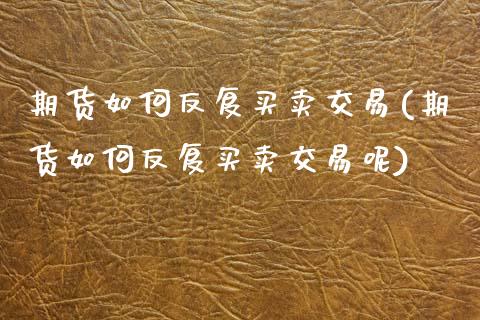 期货如何反复买卖交易(期
货如何反复买卖交易呢)